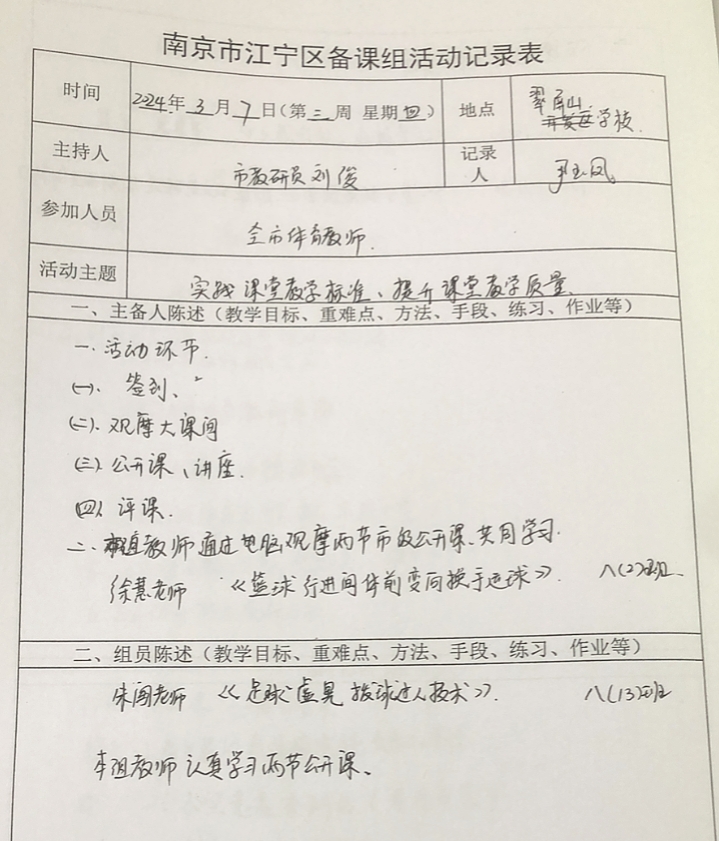 南京市江宁区备课组活动记录表
时间 2024年 3 月 7 日(第 三 周 星期 四) 地点 翠屏山 学校
主持人 市教研员刘俊 记录人
参加人员 全市体育教师.
活动主题 实践课堂教学标准、提升课堂教学质量.
一、主备人陈述（教学目标、重难点、方法、手段、练习、作业等）
一. 活动环节.
(一). 签到、
(二). 观摩大课间
(三). 公开课、讲座.
(四). 评课.
二、本组教师通过电脑观摩两节市级公开课、共同学习.
徐慧老师 《篮球行进间体前变向换手运球》. 八(2)班.
二、组员陈述（教学目标、重难点、方法、手段、练习、作业等）
朱闯老师 《足球虚晃拨球过人技术》. 八(13)班
本组教师认真学习两节公开课、